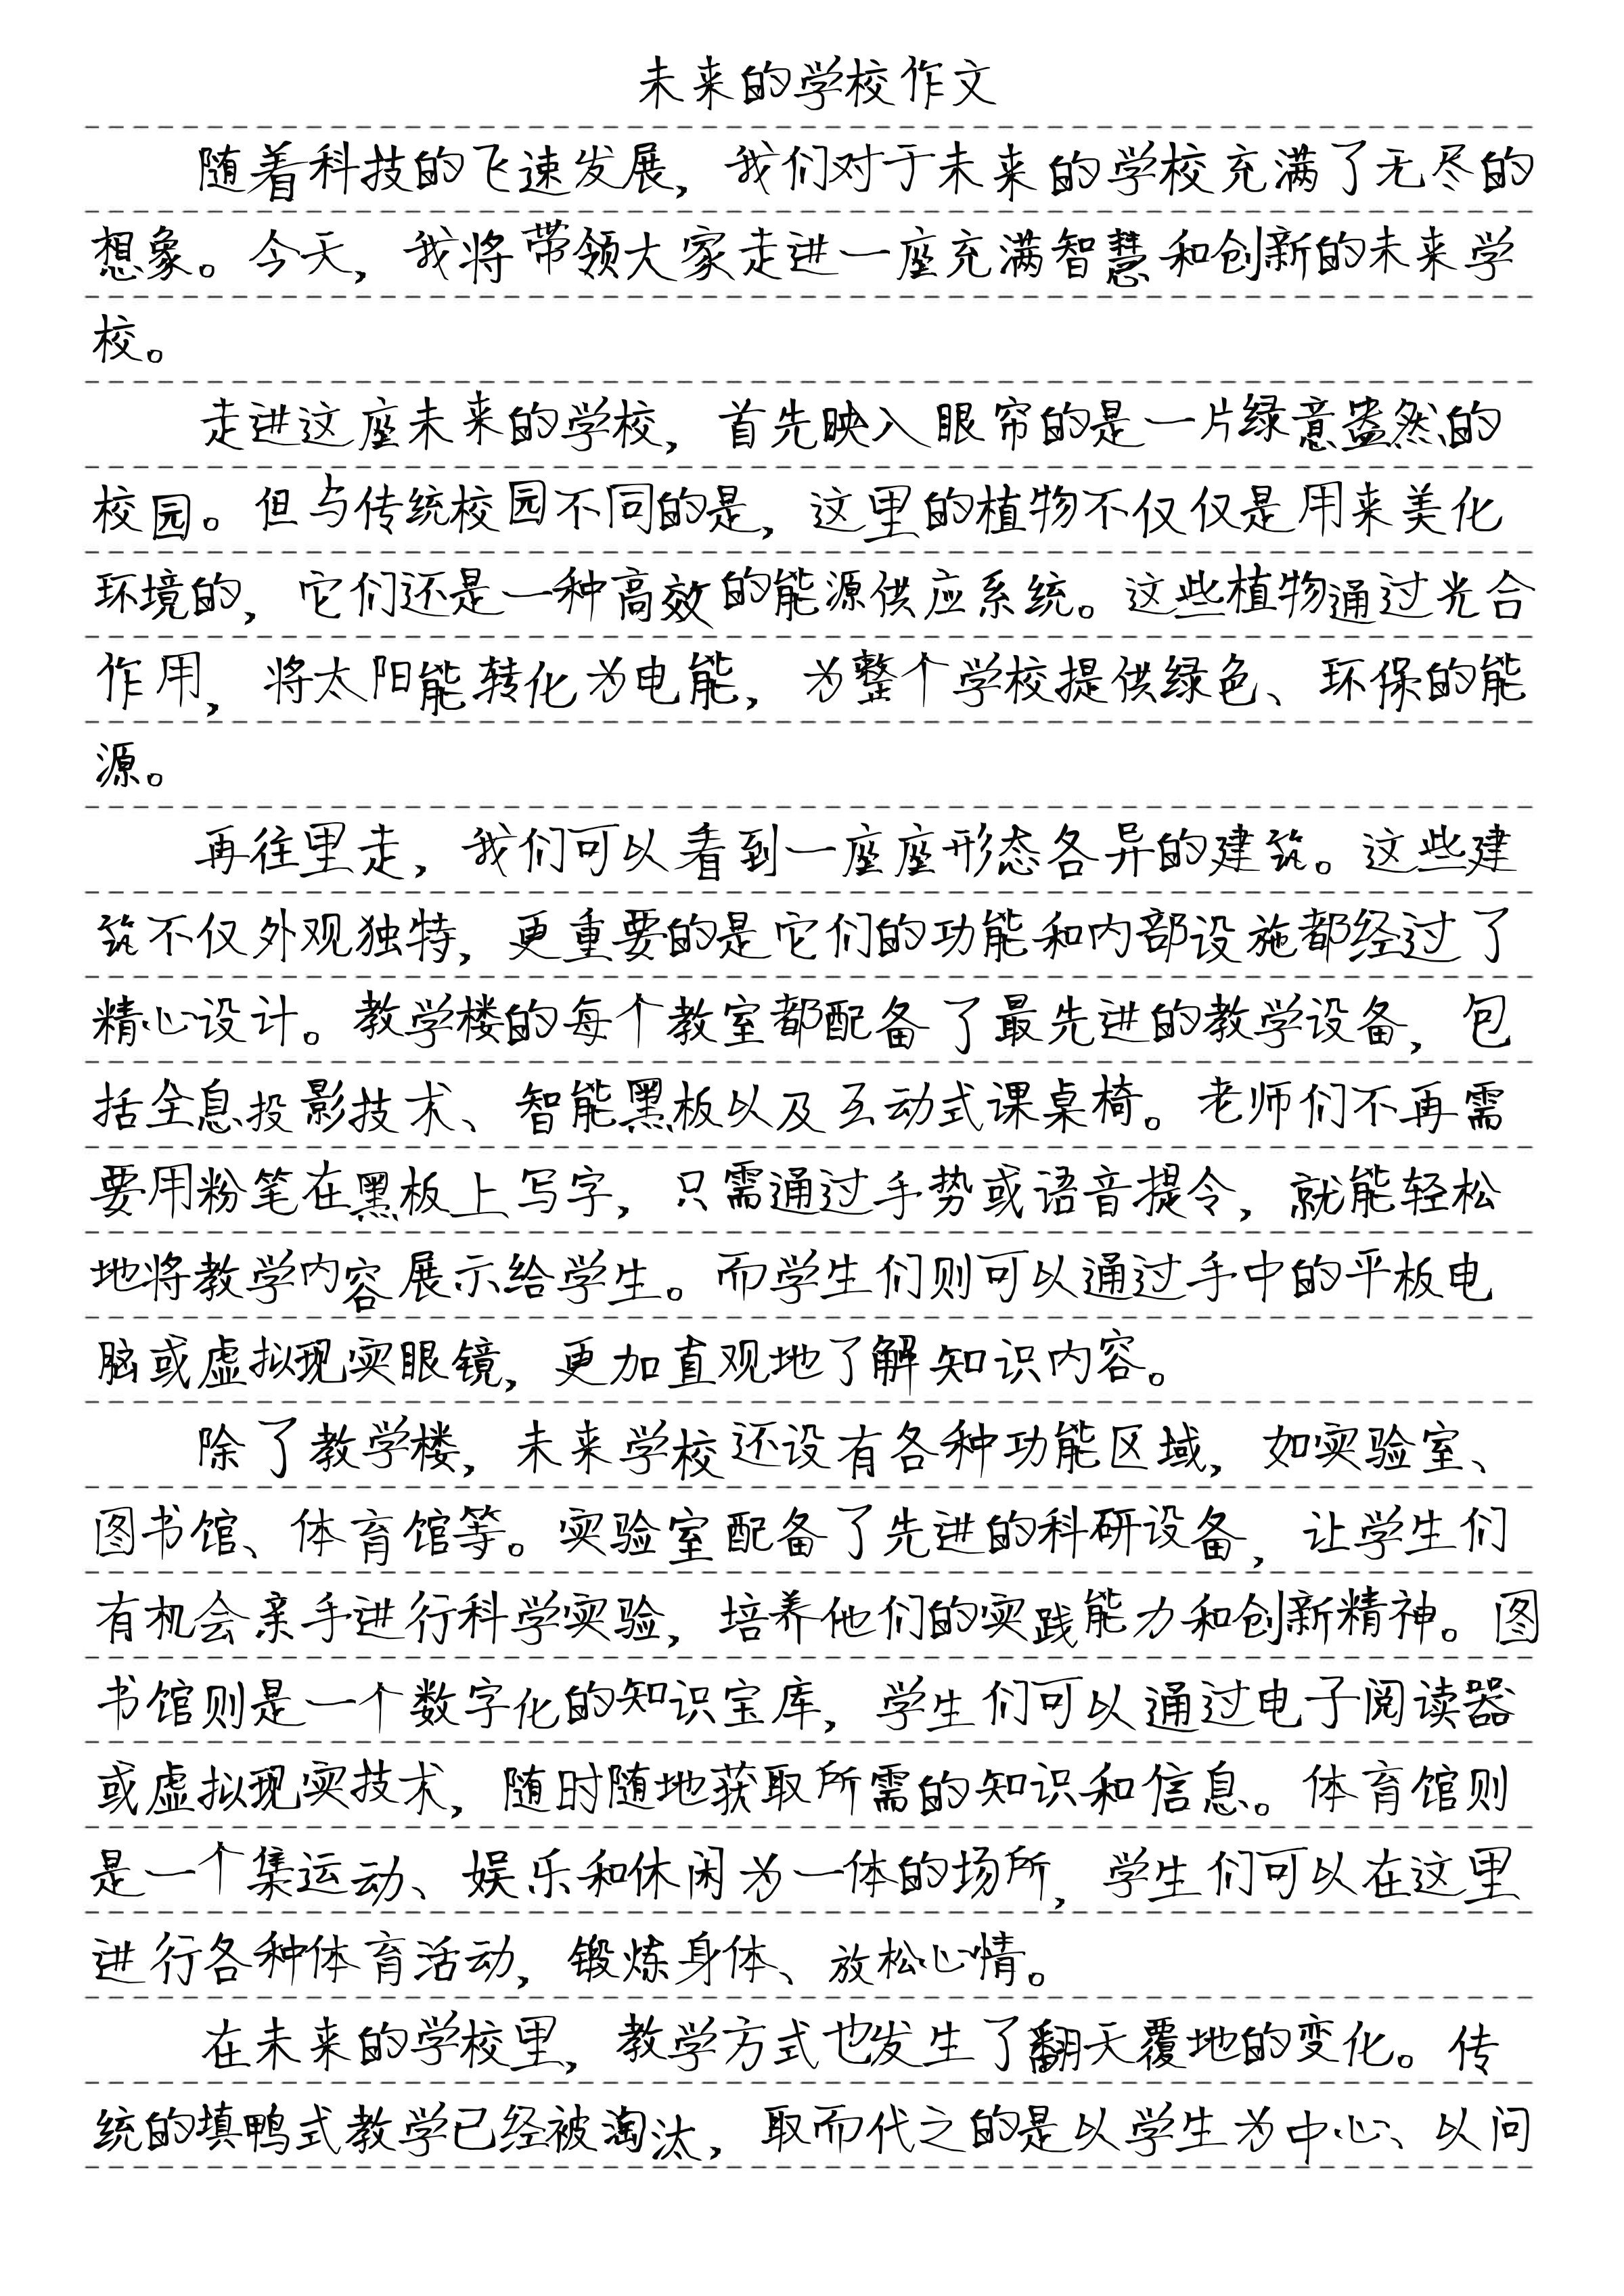 未来的学校作文
随着科技的飞速发展，我们对于未来的学校充满了无尽的
想象。今天，我将带领大家走进一座充满智慧和创新的未来学
校。
走进这座未来的学校，首先映入眼帘的是一片绿意盎然的
校园。但与传统校园不同的是，这里的植物不仅仅是用来美化
环境的，它们还是一种高效的能源供应系统。这些植物通过光合
作用，将太阳能转化为电能，为整个学校提供绿色、环保的能
源。
再往里走，我们可以看到一座座形态各异的建筑。这些建
筑不仅外观独特，更重要的是它们的功能和内部设施都经过了
精心设计。教学楼的每个教室都配备了最先进的教学设备，包
括全息投影技术、智能黑板以及互动式课桌椅。老师们不再需
要用粉笔在黑板上写字，只需通过手势或语音提令，就能轻松
地将教学内容展示给学生。而学生们则可以通过手中的平板电
脑或虚拟现实眼镜，更加直观地了解知识内容。
除了教学楼，未来学校还设有各种功能区域，如实验室、
图书馆、体育馆等。实验室配备了先进的科研设备，让学生们
有机会亲手进行科学实验，培养他们的实践能力和创新精神。图
书馆则是一个数字化的知识宝库，学生们可以通过电子阅读器
或虚拟现实技术，随时随地获取所需的知识和信息。体育馆则
是一个集运动、娱乐和休闲为一体的场所，学生们可以在这里
进行各种体育活动，锻炼身体、放松心情。
在未来的学校里，教学方式也发生了翻天覆地的变化。传
统的填鸭式教学已经被淘汰，取而代之的是以学生为中心、以问